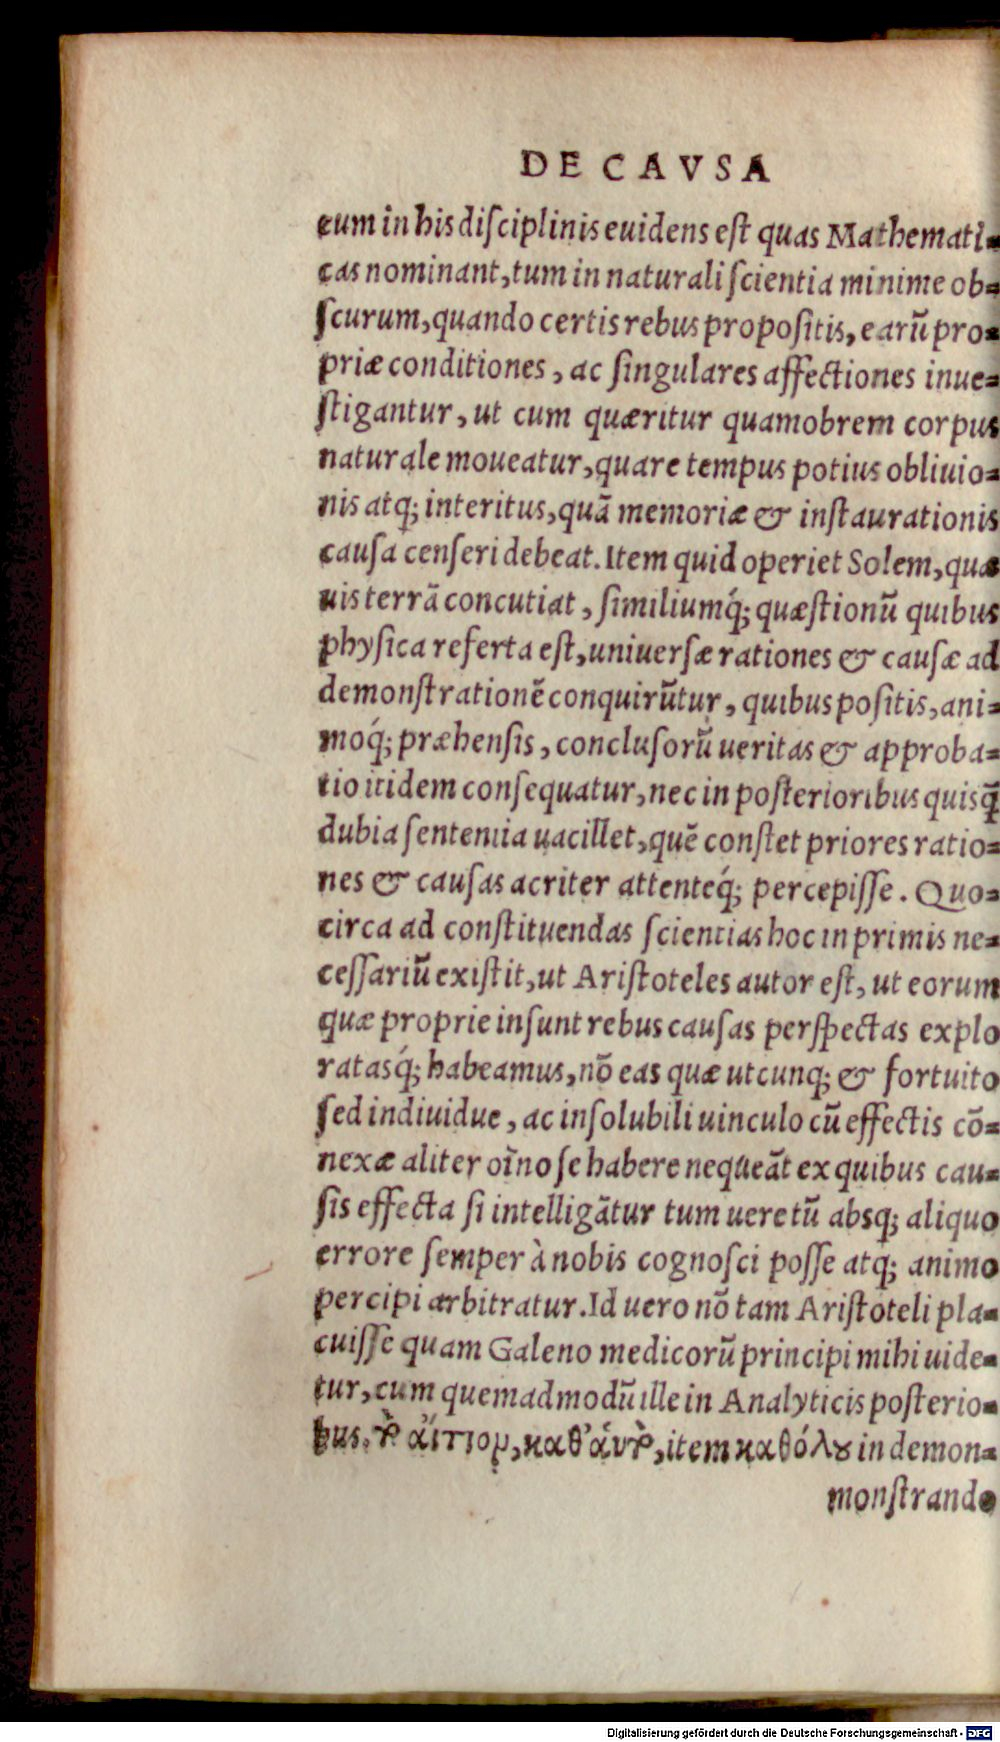 DE CAVSA
cum in his diſciplinis euidens eſt quas Mathemati-
cas nominant, tum in naturali ſcientia minime ob-
ſcurum, quando certis rebus propoſitis, earū pro-
priæ conditiones, ac ſingulares affectiones inue-
ſtigantur, ut cum quæritur quamobrem corpus
naturale moueatur, quare tempus potius obliuio-
nis atq; interitus, quā memoriæ & inſtaurationis
cauſa cenſeri debeat. Item quid operiet Solem, quæ
uis terrā concutiat, ſimiliumq́; quæſtionū quibus
phyſica referta eſt, uniuerſæ rationes & cauſæ ad
demonſtrationē conquirūtur, quibus poſitis, ani-
moq́; præhenſis, concluſorū ueritas & approba-
tio itidem conſequatur, nec in poſterioribus quisq̄
dubia ſententia uacillet, quē conſtet priores ratio-
nes & cauſas acriter attenteq́; percepiſſe. Quo-
circa ad conſtituendas ſcientias hoc in primis ne-
ceſſariū exiſtit, ut Ariſtoteles autor eſt, ut eorum
quæ proprie inſunt rebus cauſas perſpectas explo
ratasq́; habeamus, nō eas quæ utcunq; & fortuito
ſed indiuidue, ac inſolubili uinculo cū effectis cō-
nexæ aliter oīno ſe habere nequeāt ex quibus cau-
ſis effecta ſi intelligātur tum uere tū absq; aliquo
errore ſemper à nobis cognoſci poſſe atq; animo
percipi arbitratur. Id uero nō tam Ariſtoteli pla-
cuiſſe quam Galeno medicorū principi mihi uide-
tur, cum quemadmodū ille in Analyticis poſterio-
bus, τὸ αἴτιον, καθ᾽ἁυτὸ, item καθόλȣ in demon-
monſtrando
Digitalisierung gefördert durch die Deutsche Forschungsgemeinschaft - DFG